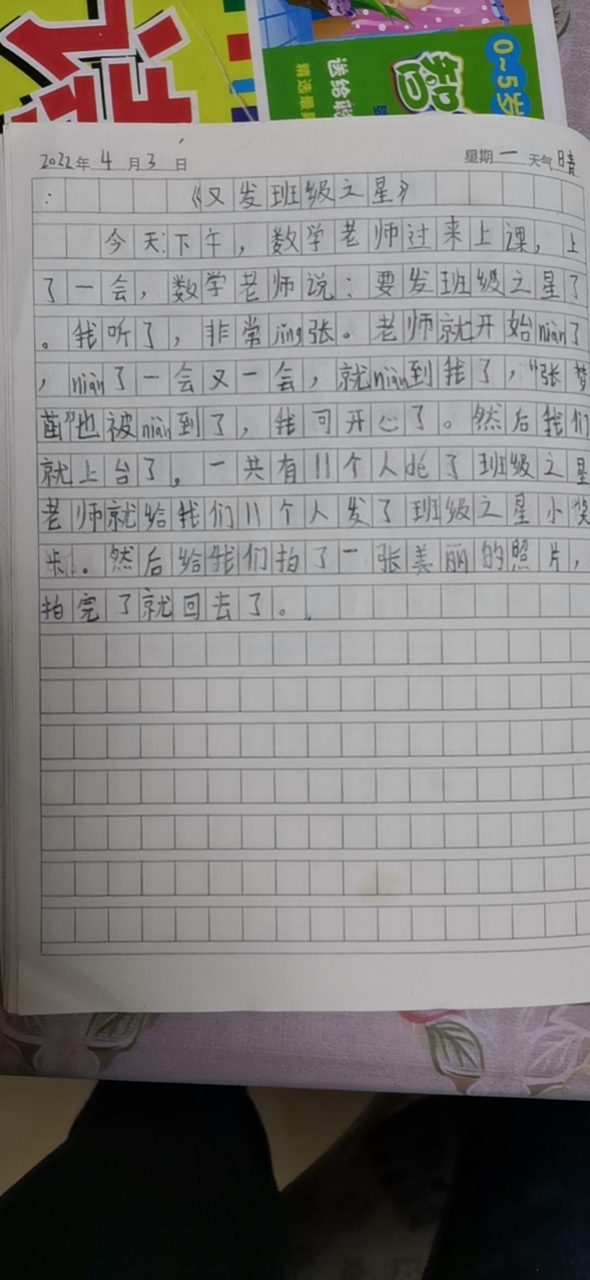 0~5岁
智
送给聪
精选最
读
2022年 4 月 3 日 星期 一 天气 晴
《又发班级之星》
今天下午，数学老师过来上课，上
了一会，数学老师说：要发班级之星了
。我听了，非常jing张。老师就开始niàn了
，niàn了一会又一会，就niàn到我了，“张梦
菡”也被niàn到了，我可开心了。然后我们
就上台了。一共有11个人dé了班级之星
老师就给我们11个人发了班级之星小奖
状。然后给我们拍了一张美丽的照片，
拍完了就回去了。